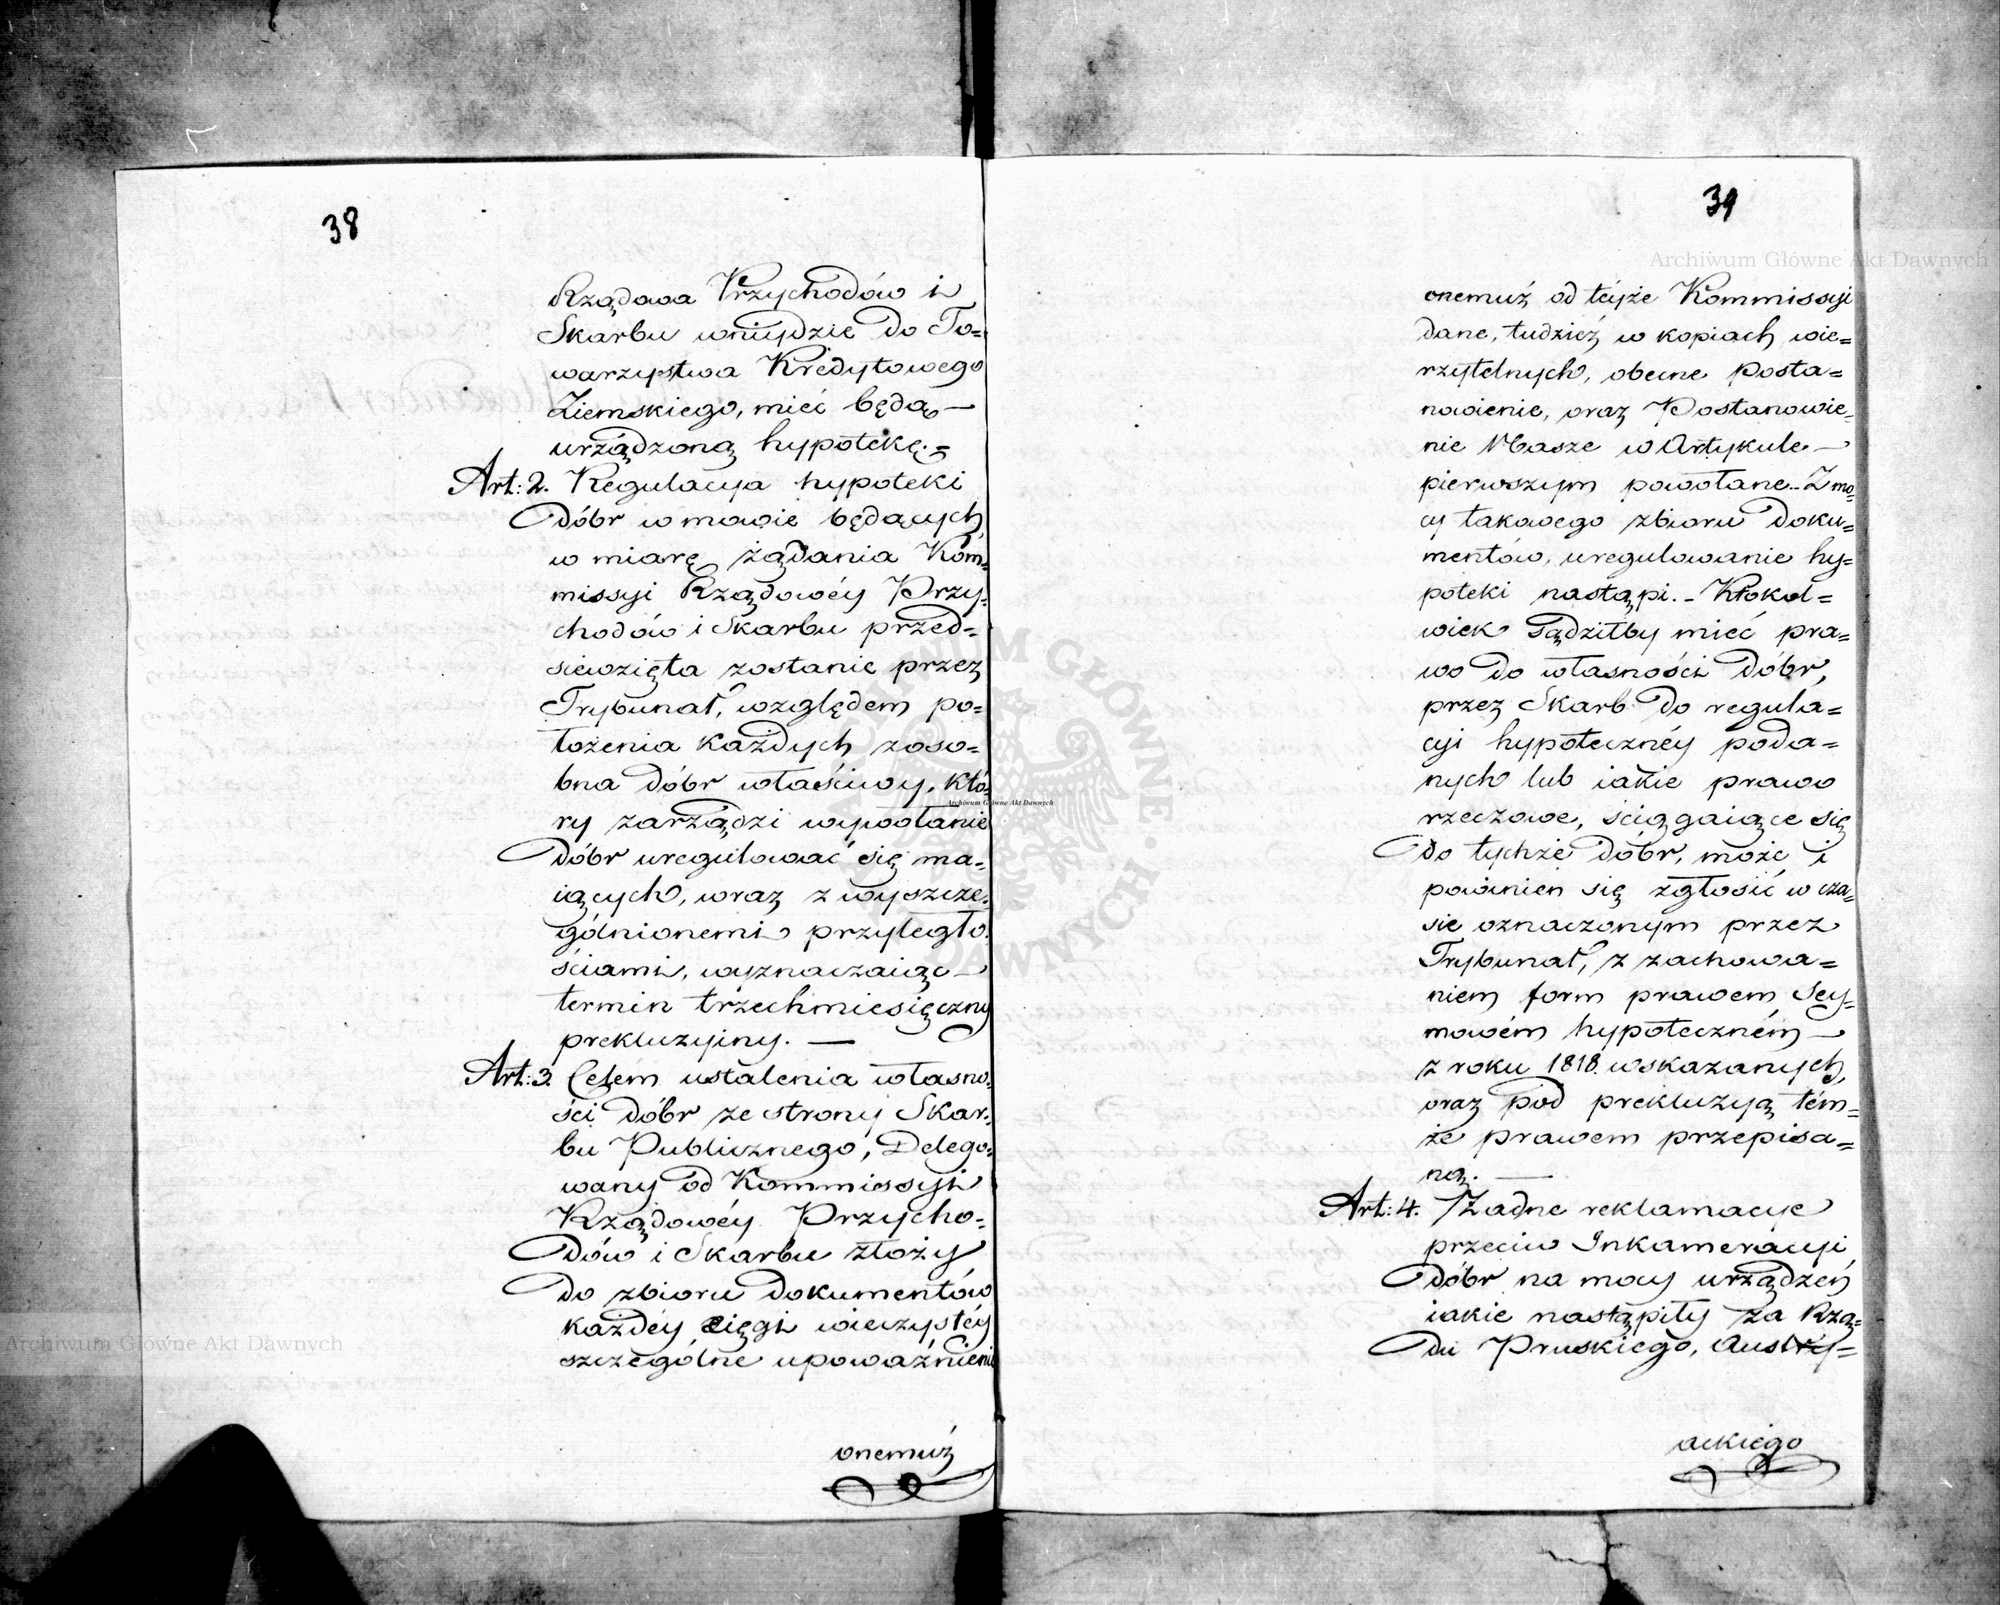 38
Rządowa Przychodów i
Skarbu wniydzie do To=
warzystwa Kredytowego
Ziemskiego, mieć będą —
urządzoną hypotekę. =
Art: 2. Regulacya hypoteki
Dóbr w mowie będących
w miarę żądania Kom=
missyi Rządowéy Przy=
chodów i Skarbu przed=
siewzięta zostanie przez
Trybunał, względem po=
łożenia każdych zoso=
bna dóbr właściwy, któ=
ry zarządzi wywołanie
Dóbr uregulować się ma=
iących, wraz z wyszcze=
gólnionemi przyległo=
ściami, wyznaczaiąc —
termin trzechmiesięczny
prekluzyiny. —
Art: 3. Celem ustalenia własno=
ści dóbr ze strony Skar=
bu Publicznego, Delego=
wany od Kommissyi
Rządowéy Przycho=
dów i Skarbu złoży
do zbioru dokumentów
każdéy xięgi wieczystéy
szczególne upoważnienie
onemuż
39
onemuż od téyże Kommissyi
dane, tudzież w kopiach wie=
rzytelnych, obecne posta=
nowienie, oraz Postanowie=
nie Nasze w Artykule —
pierwszym powołane. Z mo=
cy takowego zbioru doku=
mentów, uregulowanie hy=
poteki nastąpi. _ Ktokol=
wiek sądziłby mieć pra=
wo do własności dóbr,
przez Skarb do regula=
cyi hypotecznéy poda=
nych lub iakie prawo
rzeczowe, ściągaiące się
do tychże dóbr, może i
powinien się zgłosić w cza=
sie oznaczonym przez
Trybunał, z zachowa=
niem form prawem Sey=
mowém hypoteczném —
z roku 1818. wskazanych,
oraz pod prekluzyą tém=
że prawem przepisa=
ną. —
Art: 4. Żadne reklamacye
przeciw Inkameracyi
Dóbr na mocy urządzeń
iakie nastąpiły za Rzą=
du Pruskiego, Austry=
ackiego
Archiwum Główne Akt Dawnych
Archiwum Główne Akt Dawnych
Archiwum Główne Akt Dawnych
ARCHIWUM GŁÓWNE AKT DAWNYCH